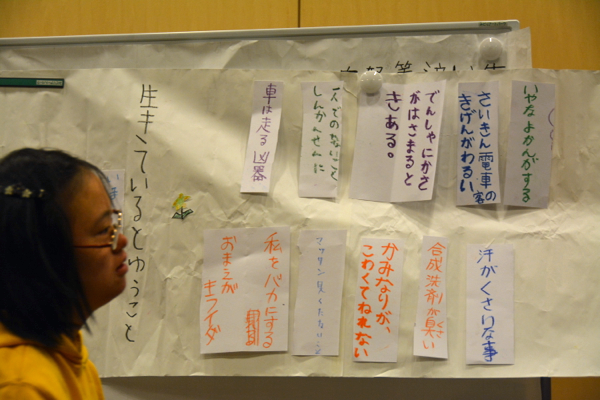 いやなよかんがする
さいきん電車の客
きげんがわるい
でんしゃにかさ
がはさまると
きある。
一人でのれないこと
しんかんせんに
車は走る凶器
生きているとゆうこと
汗がくさりな事
合成洗剤が臭い
かみなりが、
こわくてねれない
私をバカにする
おまえが
キライダ